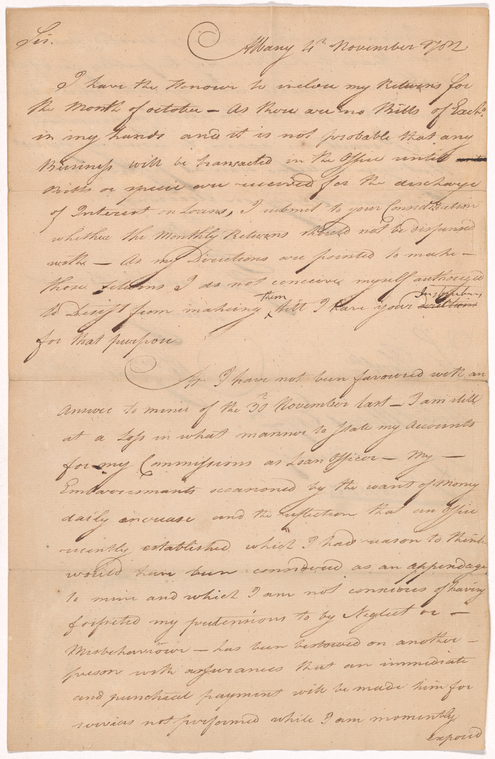 Sir.
Albany 4th November 1782
I have the Honour to inclose my Returns for
the Month of october – As there are no Bills of Exch.
in my hands and it is not probable that any
Business will be transacted in the Office untill
Bills or specie are received for the discharge
of Interest on Loans, I submit to your Consideration
whether the Monthly Returns should not be dispensed
with – As my Directions are pointed to make –
those returns I do not conceive myself authorized
to Desist from making them till I have your Instructions
for that purpose
As I have not been favoured with an
Answer to mine of the 30th November last – I am still
at a Loss in what manner to State my Accounts
for my Commissions as Loan Officer – My –
Embarrassments occasioned by the want of Money
daily increase and the reflection that an Office
recently established which I had reason to think
would have been considered as an appendage
to mine and which I am not conscious of having
forfieted my pretensions to by Neglect or –
Misbehaviour – has been bestowed on another –
person with assurances that an immediate
and punctual payment will be made him for
services not performed while I am momently
exposed